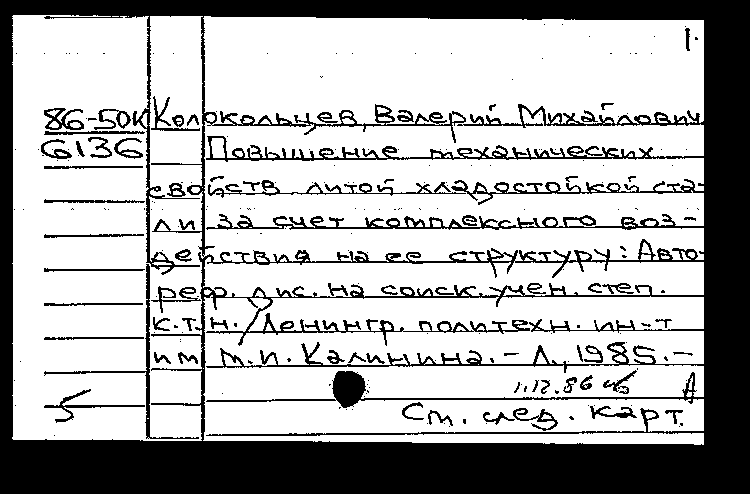 1.
86-50К Колокольцев, Валерий Михайлович
6136 Повышение механических
свойств литой хладостойкой ста-
ли за счет комплексного воз-
действия на ее структуру: Авто-
реф. дис. на соиск. учен. степ.
к.т.н. / Ленингр. политехн. ин-т
им М.И. Калинина. - Л., 1985. -
1.12.86 А
5 См. след. карт.